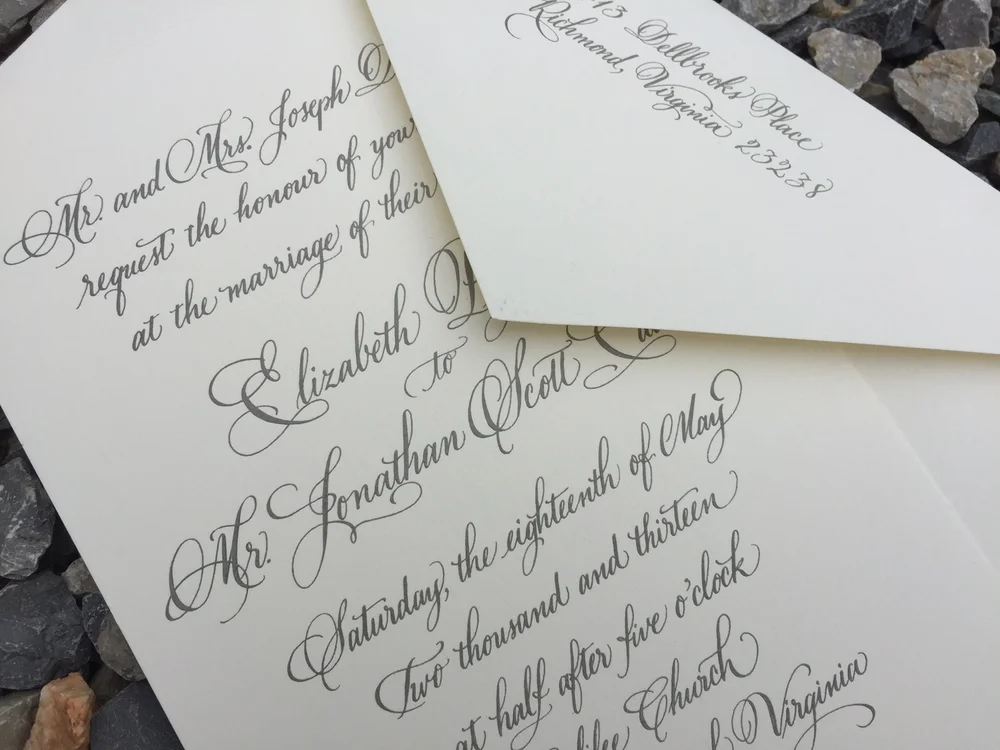 Mr. and Mrs. Joseph
request the honour of you
at the marriage of their
Elizabeth
to
Mr. Jonathan Scott
Saturday, the eighteenth of May
Two thousand and thirteen
at half after five o'clock
Church
Virginia
13 Dellbrooks Place
Richmond, Virginia 23238